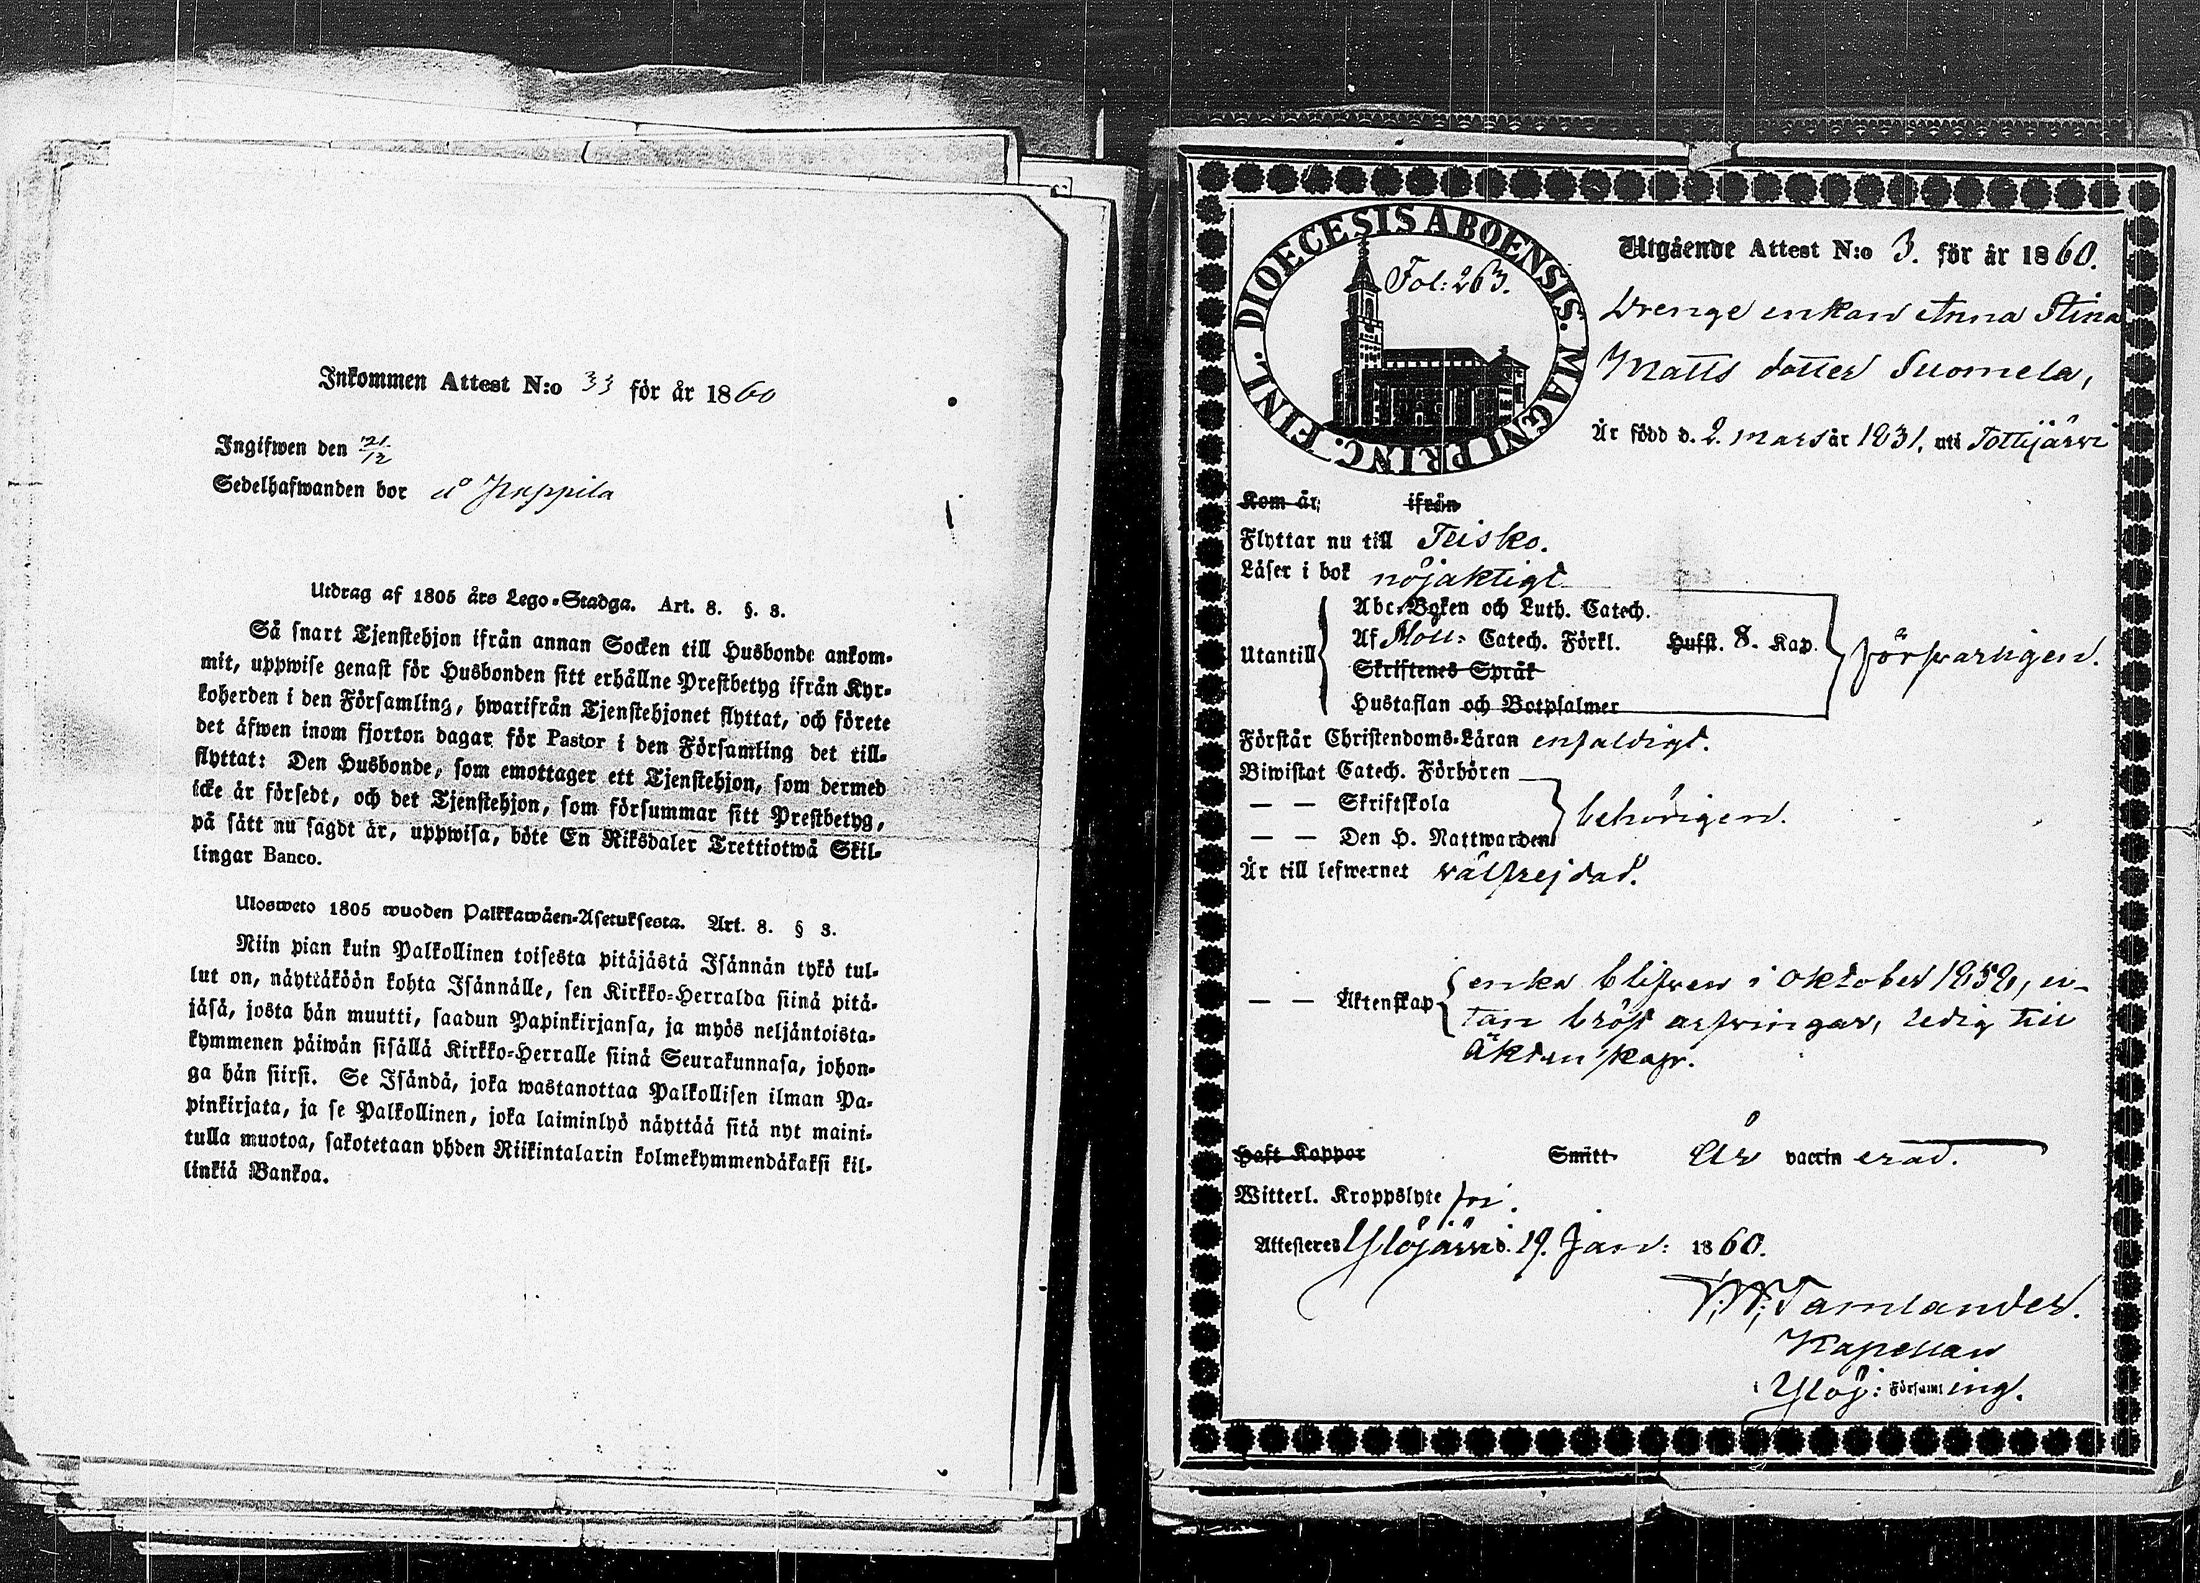 Inkommen Attest N:o 33 för år 1860
Ingifwen den 21/12
Sedelhafwanden bor å
Utdrag af 1805 års Lego-Stadga. Art. 8. §. 3.
Så snart Tjenstehjon ifrån annan Socken till Husbonde ankom-
mit, uppwise genast för Husbonden sitt erhållne Prestbetyg ifrån Kyr-
koherden i den Församling, hwarifrån Tjenstehjonet flyttat, och förete
det äfwen inom fjorton dagar för Pastor i den Församling det till-
flyttat: Den Husbonde, som emottager ett Tjenstehjon, som dermed
icke är försedt, och det Tjenstehjon, som försummar sitt Prestbetyg,
på sätt nu sagdt är, uppwisa, böte En Riksdaler Trettiotwå Skil-
lingar Banco.
Ulosweto 1805 wuoden Palkkawäen-Asetuksesta. Art. 8. § 3.
Niin pian kuin Palkollinen toisesta pitäjästä Isännän tykö tul-
lut on, näyttäköön kohta Isännälle, sen Kirkko-Herralda siinä pitä-
jäsä, josta hän muutti, saadun Papinkirjansa, ja myös neljäntoista-
kymmenen päiwän sisällä Kirkko-Herralle siinä Seurakunnasa, johon-
ga hän siirsi. Se Isändä, joka wastanottaa Palkollisen ilman Pa-
pinkirjata, ja se Palkollinen, joka laiminlyö näyttää sitä nyt maini-
tulla muotoa, sakotetaan yhden Riikintalarin kolmekymmendäkaksi kil-
linkiä Bankoa.
DIOECESIS ABOENSIS. MAGNI PRINC. FINL.
Fol: 263.
Utgående Attest N:o 3. för år 1860.
Drenge enkan Anna Stina
Matts dotter Suomela,
Är född d. 2. mars år 1831. uti Tottijärvi
Kom år ifrån
Flyttar nu till Teisko.
Läser i bok nöjaktigt
Utantill
Abc-Boken och Luth. Catech.
Af Catech. Förkl. Hufst. 8. Kap.
Skriftenes Språk
Hustaflan och Botpsalmer
försvarligen.
Förstår Christendoms-Läran enfaldigt.
Biwistat Catech. Förhören
— — Skriftskola
— — Den H. Nattwarden
behörigen.
Är till lefwernet välfrejdad.
— — Äktenskap
enka blifven i oktober 1858, u-
tan bröst arfvingar, ledig till
äktenskap.
Haft Koppor Smitt Är vaccin erad.
Witterl. Kroppslyte fri.
Attesteres Ylöjärvi d. 19. Jan: 1860.
Tamlander.
Kapellan
i Ylöj: Församl ing.